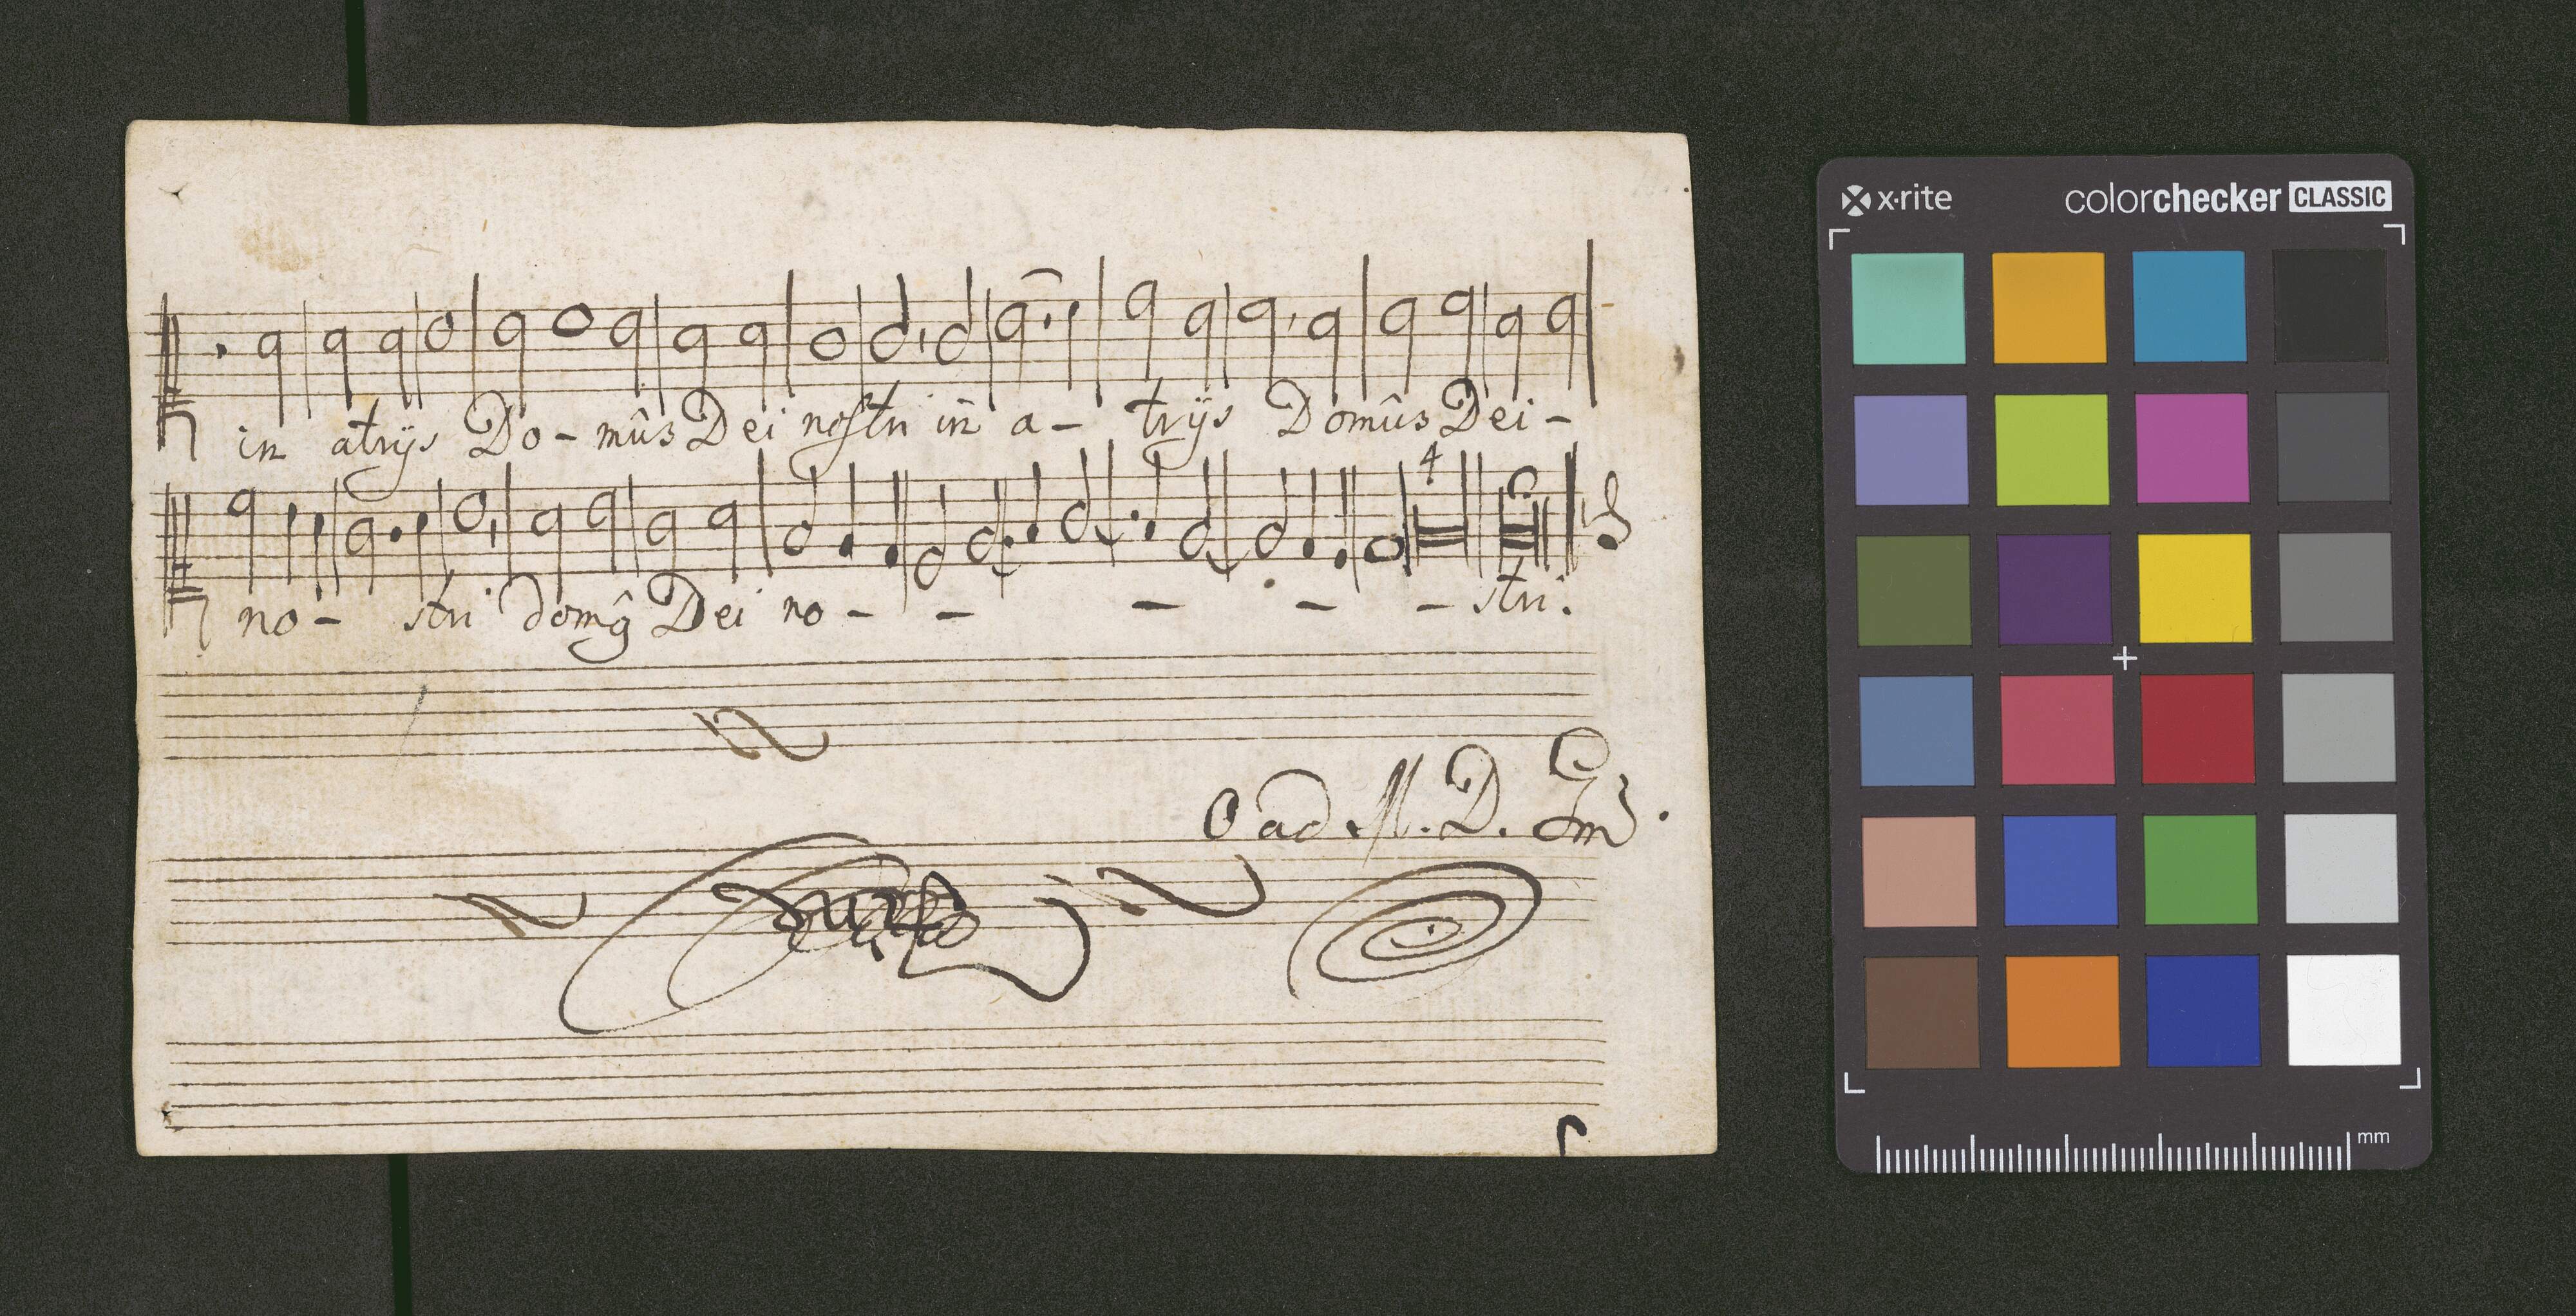 in atrijs Do - mûs Dei nostri in a - trijs Domûs Dei -
4
no - stri domꝰ Dei no - - - - - stri.
O ad M. D. G
x·rite colorchecker CLASSIC
mm